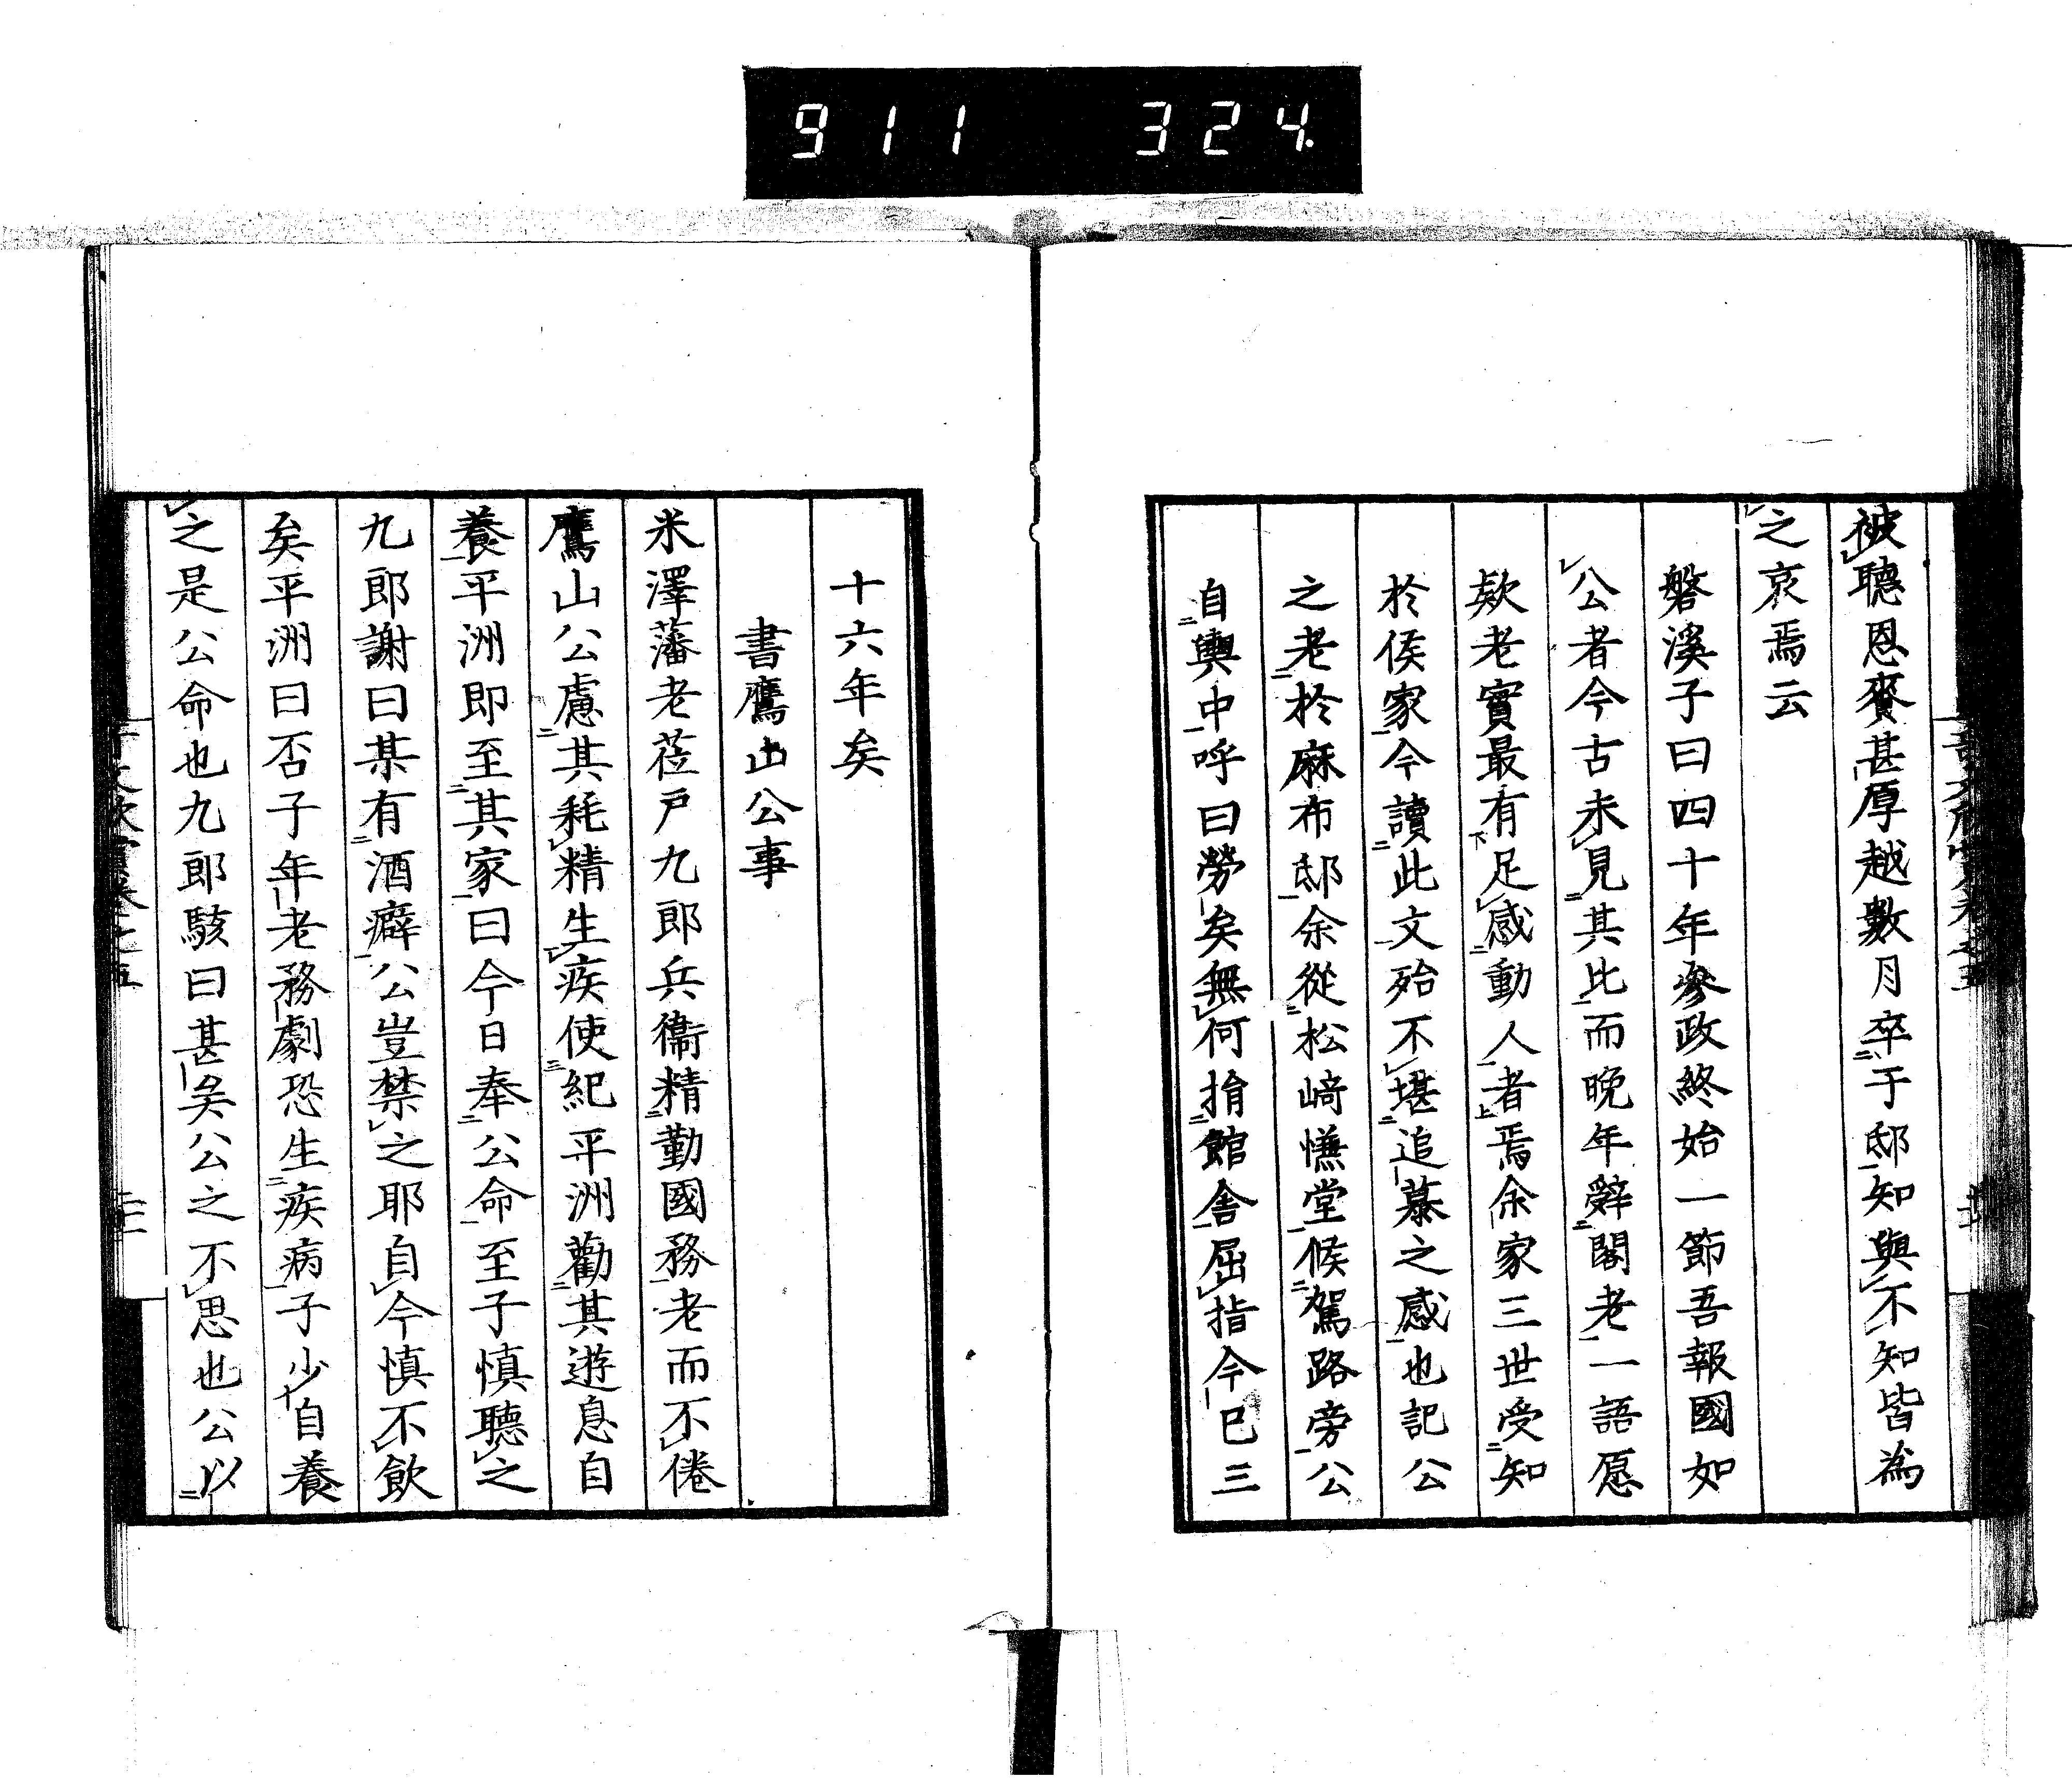 911 324
被聽恩賚甚厚越數月卒于邸知與不知皆為
之哀焉云
磐溪子曰四十年參政終始一節吾報國如
公者今古未見其比而晚年辭閣老一語愿
欵老實最有足感動人者焉余家三世受知
於侯家今讀此文殆不堪追慕之感也記公
之老於麻布邸余從松﨑慊堂候駕路旁公
自輿中呼曰勞矣無何捐館舍屈指今已三
十六年矣
書鷹山公事
米澤藩老莅戸九郎兵衞精勤國務老而不倦
鷹山公慮其耗精生疾使紀平洲勸其遊息自
養平洲即至其家曰今日奉公命至子慎聽之
九郎謝曰某有酒癖公豈禁之耶自今慎不飲
矣平洲曰否子年老務劇恐生疾病子少自養
之是公命也九郎駭曰甚矣公之不思也公以